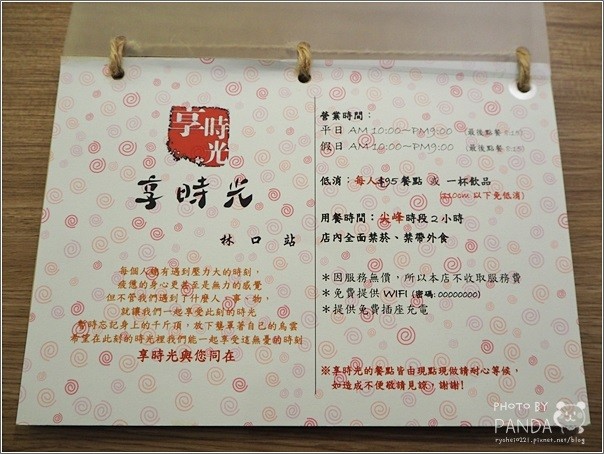 享時光
享時光
林口站
每個人總有遇到壓力大的時刻，
疲憊的身心更甚至是無力的感覺
但不管我們遇到了什麼人、事、物，
就讓我們一起享受此刻的時光
暫時忘記身上的千斤頂，放下壟罩著自己的烏雲
希望在此刻的時光裡我們能一起享受這無憂的時刻
享時光與您同在
營業時間：
平日 AM 10:00~PM9:00 (最後點餐 8:15)
假日 AM 10:00~PM9:00 (最後點餐 8:15)
低消：每人$95餐點 或 一杯飲品
(110cm 以下免低消)
用餐時間：尖峰時段2小時
店內全面禁菸、禁帶外食
＊因服務無價，所以本店不收取服務費
＊免費提供 WIFI (密碼: 00000000)
＊提供免費插座充電
※享時光的餐點皆由現點現做請耐心等候，
如造成不便敬請見諒，謝謝!
PHOTO BY
PANDA
ryohei0221.pixnet.net/blog